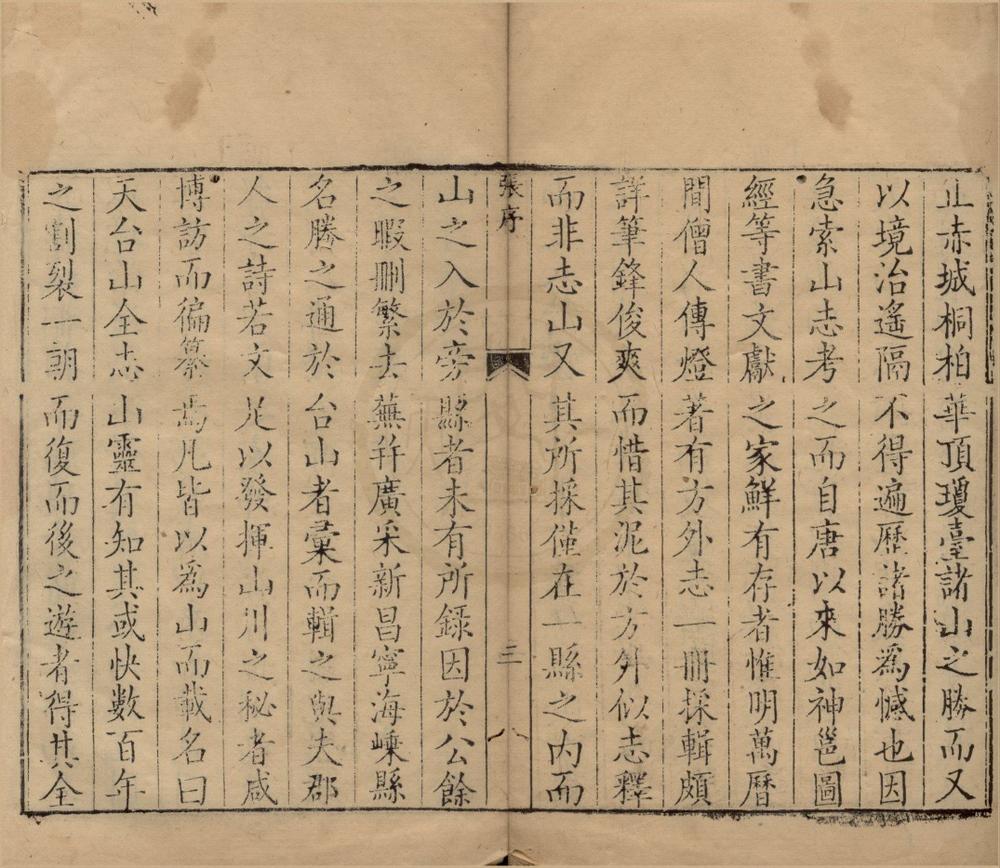 止赤城桐柏華頂瓊臺諸山之勝而又
以境治遙隔不得遍歷諸勝爲憾也因
急索山志考之而自唐以來如神邕圖
經等書文獻之家鮮有存者惟明萬曆
間僧人傳燈著有方外志一冊採輯頗
詳筆鋒俊爽而惜其泥於方外似志釋
而非志山又其所採僅在一縣之内而
張序
三
山之入於旁縣者未有所錄因於公餘
之暇刪繁去蕪幷廣采新昌寧海嵊縣
名勝之通於台山者彙而輯之與夫郡
人之詩若文足以發揮山川之秘者咸
博訪而徧纂焉凡皆以爲山而載名曰
天台山全志山靈有知其或快數百年
之割裂一朝而復而後之遊者得其全